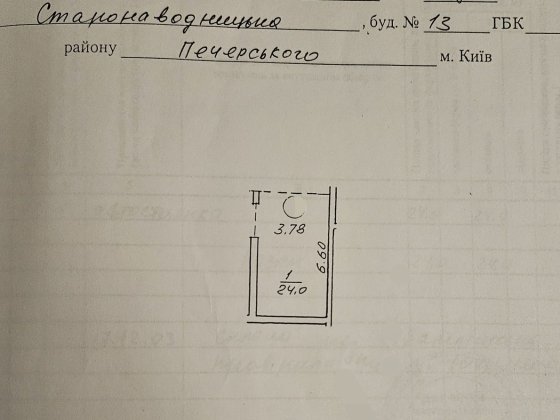 Старонаводницька, буд. № 13 ГБК
району Печерського м. Київ
3.78
6.60
1
24.0